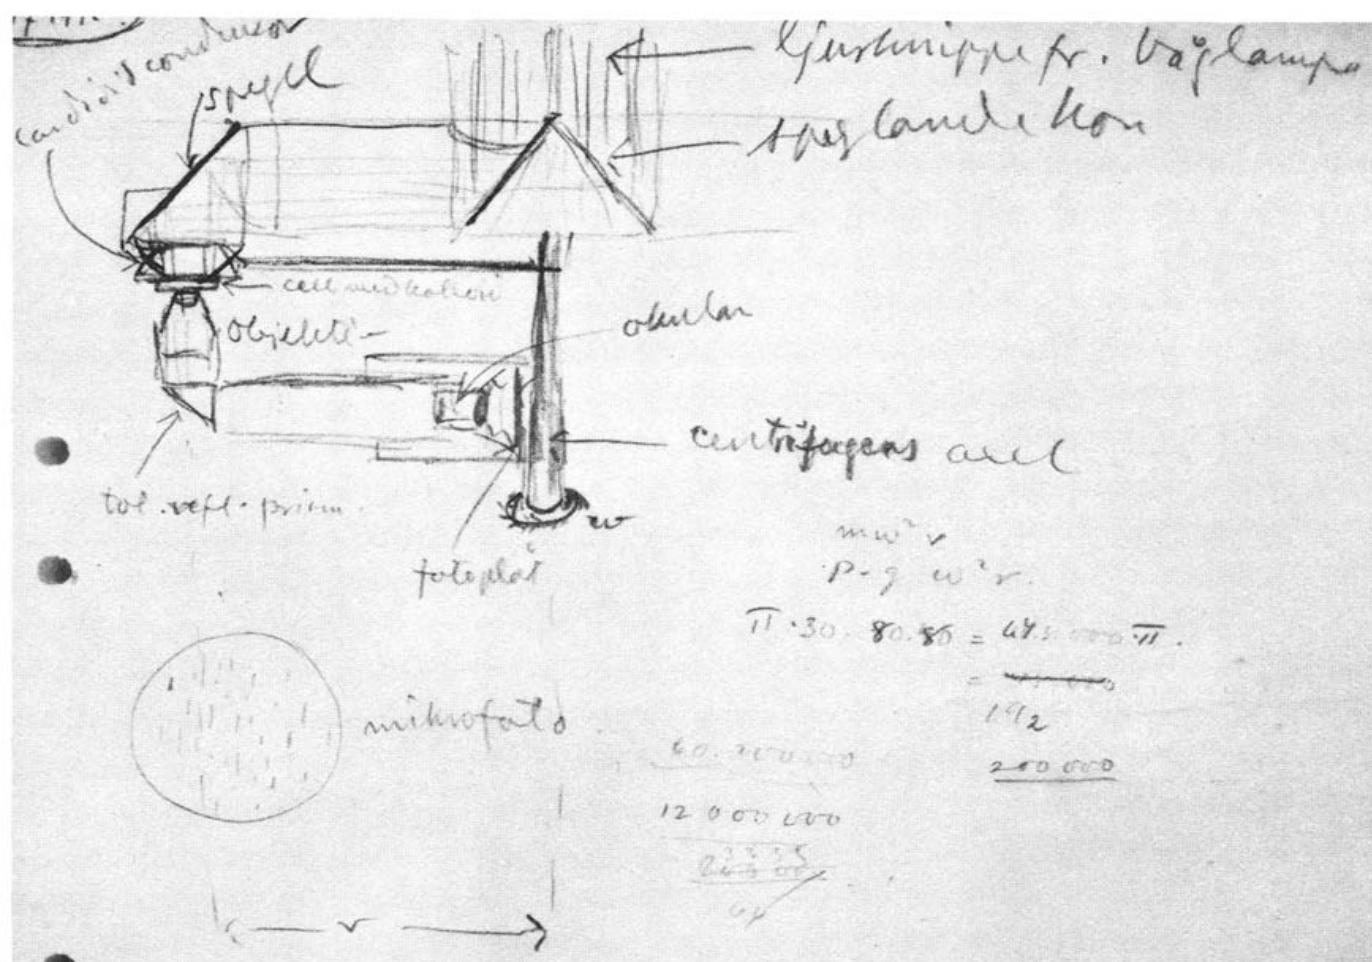 cardioid condensor
spegel
ljusknippe fr. båglampa
speglande kon
cell med kolloid
objektiv
okular
centrifugens axel
tot. refl. prism.
fotoplåt
w
mw² r
P · g w² r.
π · 30. 80. 80 =
192
200 000
mikrofoto
12 000 000
r